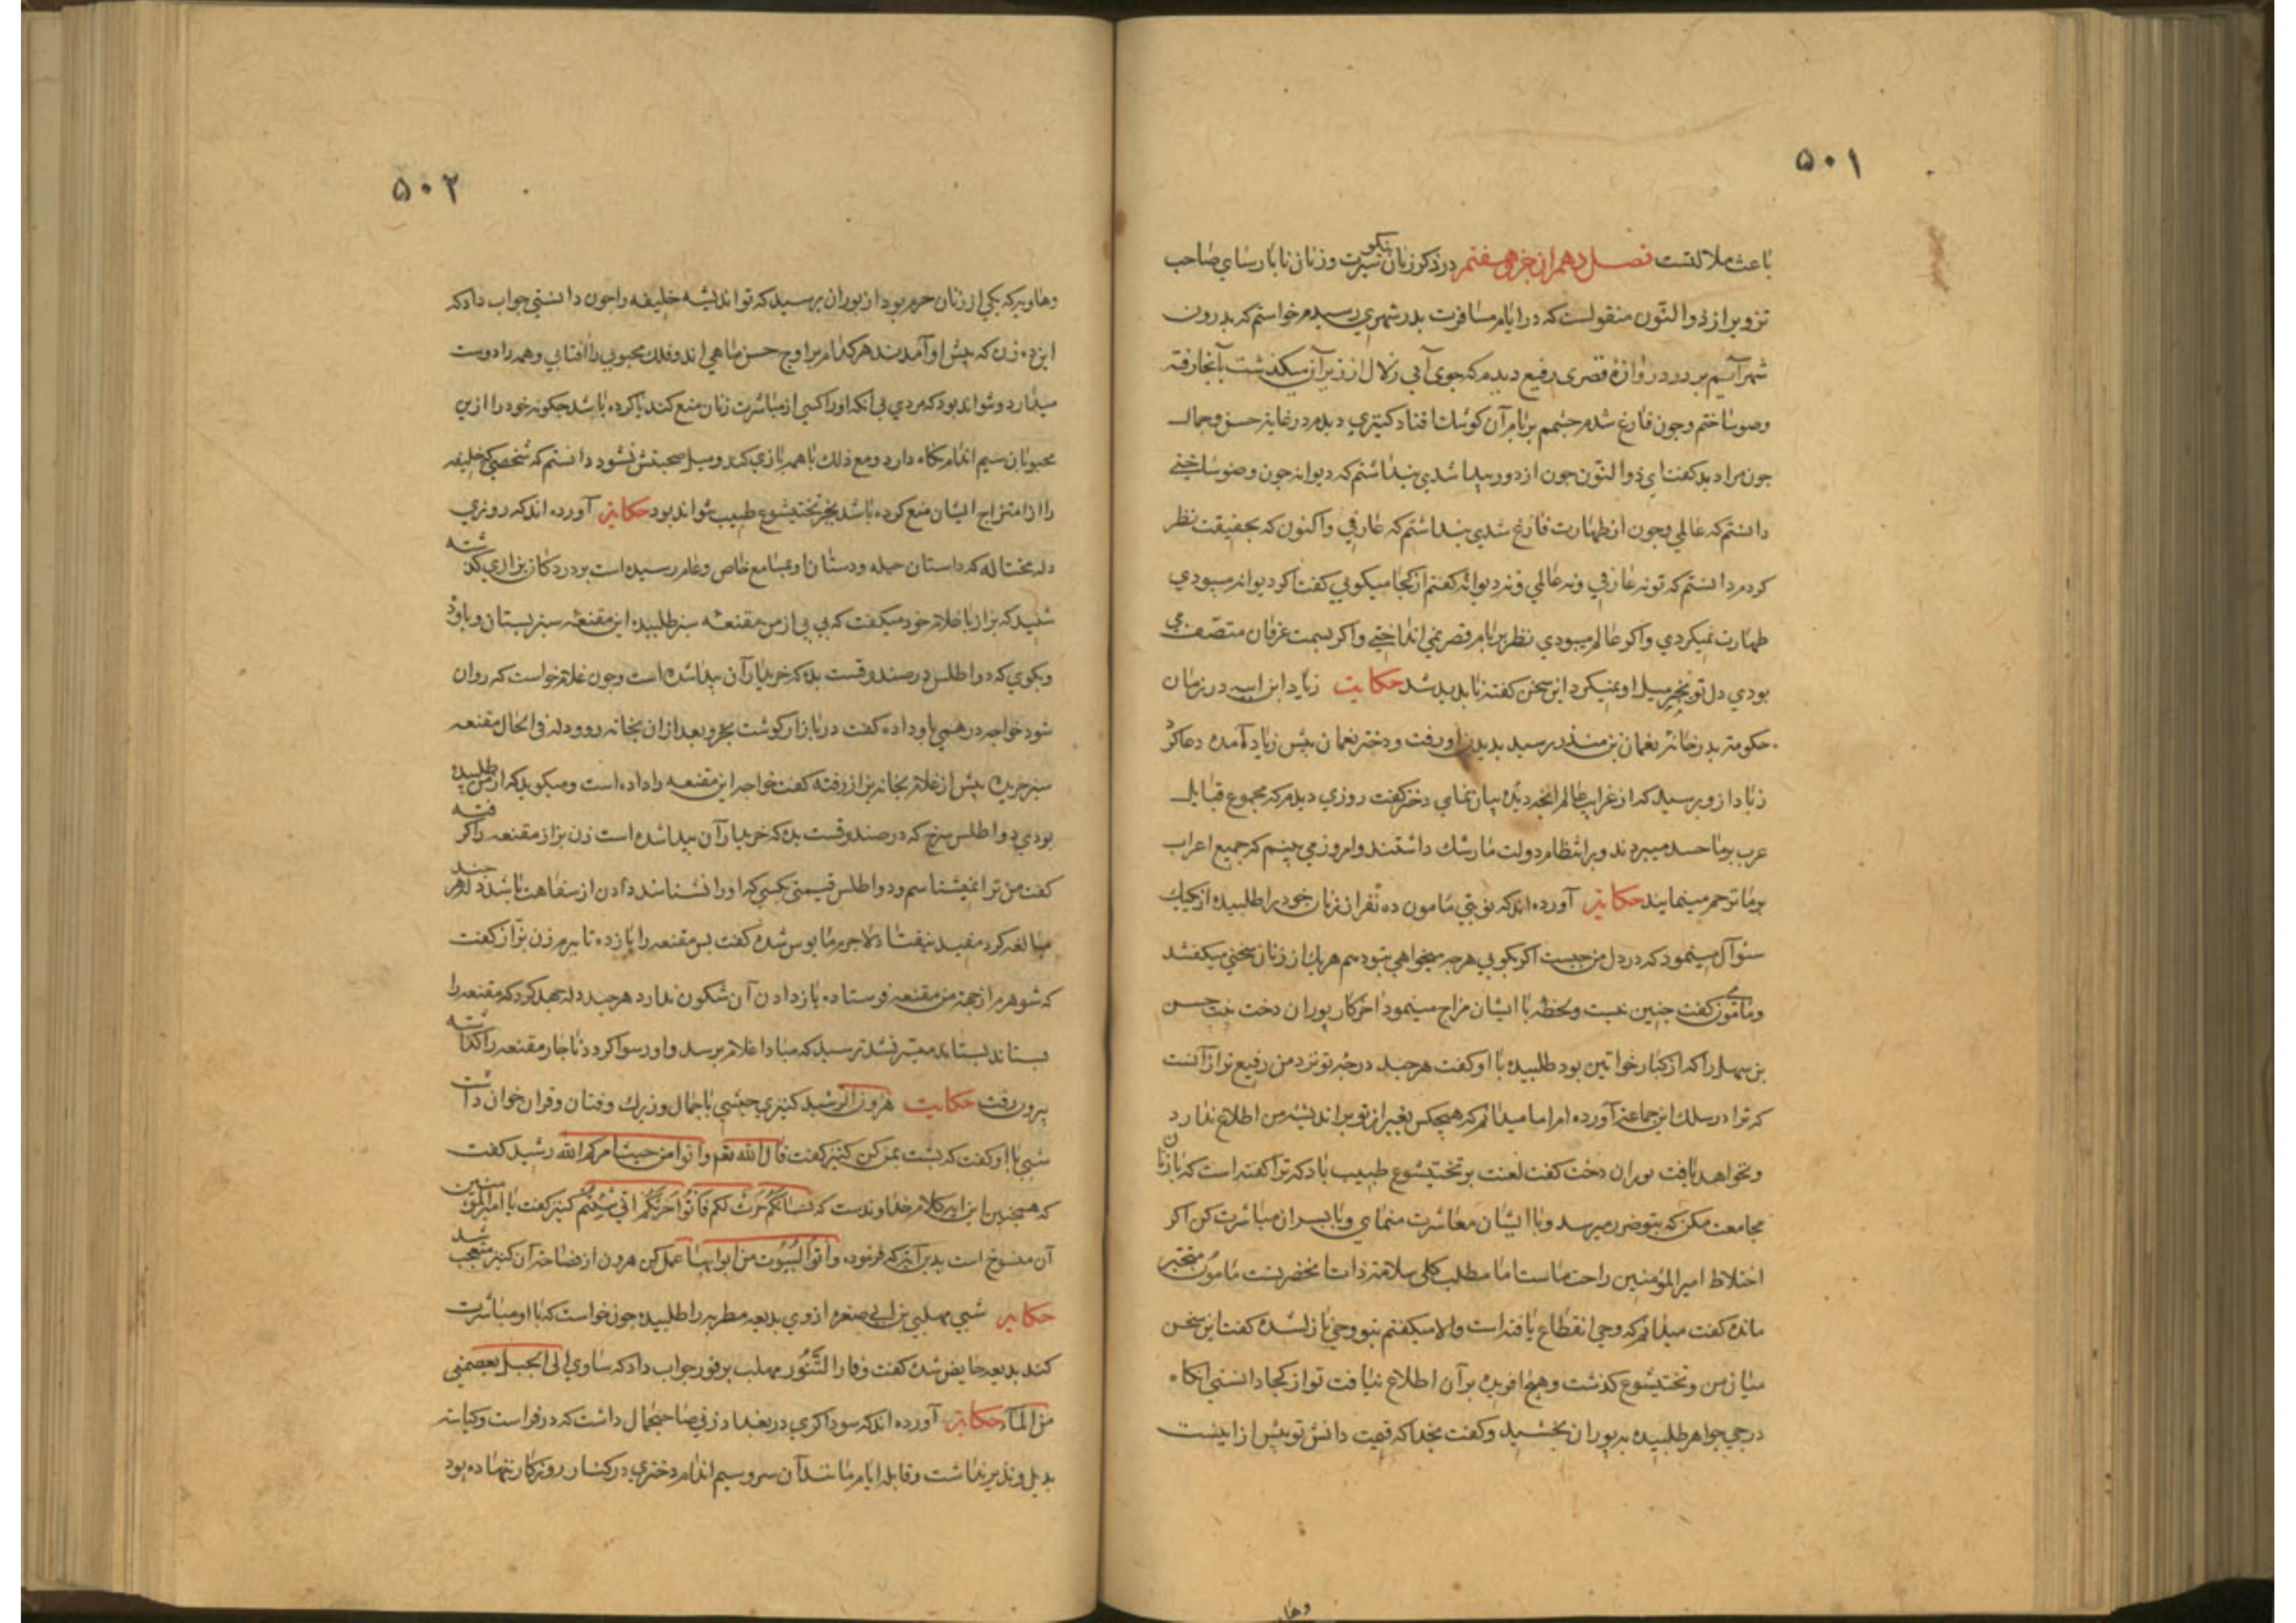 ۵۰۱
باعث ملالتست فصل دهم از جزو هفتم در ذکر زنان نیکو سیرت و زنان ناپارسای صاحب
تزویر از ذوالنّون منقولست که در ایام مسافرت بدر شهری رسیدم خواستم که بدرون
شهر آیم بر در دروازه قصری رفیع دیدم که جوی آبی زلال از زیر آن میکذشت بآنجا رفته
وضو ساختم و چون فارغ شدم چشمم بر بام آن کوشک افتاد کنیزی دیدم در غایة حسن و جمال
چون مرا دید کفت ای ذوالنّون چون از دور پیدا شدی پنداشتم که دیوانه چون وضو ساختی
دانستم که عالمی و چون از طهارت فارغ شدی پنداشتم که عارفی و اکنون که بحقیقت نظر
کردم دانستم که تو نه عارفی و نه عالمی و نه دیوانه کفتم از کجا میکویی کفت اکر دیوانه میبودی
طهارت نمیکردی و اکر عالم میبودی نظر بر بام قصر نمی انداختی و اکر بسمت عرفان متصف می
بودی دل تو بغیر میل او نمیکرد این سخن کفته ناپدید شد حکایت زیاد ابن ابیه در زمان
حکومة بدر خانه نعمان بن منذر رسید بدیدن او رفت و دختر نعمان پیش زیاد آمده دعا کرد
زیاد از و پرسید که از غرایب عالم آنچه دیده بیان نمای دختر کفت روزی دیدم که مجموع قبایل
عرب بر ما حسد میبردند و بر انتظام دولت ما رشک داشتند و امروز می بینم که جمیع اعراب
بر ما ترحم مینمایند حکایة آورده اند که نوبتی مامون ده نفر از زنان خود را طلبیده از یک یک
سئوال مینمود که در دل من چیست اکر بکویی هر چه میخواهی بتو دهم هر یک از زنان سخنی میکفتند
و مامون میکفت چنین نیست و لحظه با ایشان مزاح مینمود آخر کار پوران دخت بنت حسن
بن سهل را که از کبار خواتین بود طلبیده با او کفت هر چند درجه تو نزد من رفیع تر از آنست
که ترا در سلک این جماعة آورده ام اما میدانم که هیچکس بغیر از تو بر اندیشه من اطلاع ندارد
و نخواهد یافت پوران دخت کفت لعنت بر بختیشوع طبیب باد که ترا کفته است که با زنان
مجامعت مکن که بتو ضرر میرسد و با ایشان معاشرت منمای و با پسران مباشرت کن اکر
اختلاط امیرالمؤمنین راحت ماست اما مطلب کلی سلامة ذات آنحضرتست مامون متحیر
مانده کفت میدانم که وحی انقطاع یافته است والا میکفتم بتو وحی نازل شده کفت این سخن
میان من و بختیشوع کذشت و هیچ افریده بر آن اطلاع نیافت تو از کجا دانستی آنکاه
درجی جواهر طلبیده به پوران بخشید و کفت بخدا که قیمت دانش تو بیش از اینست
وها
۵۰۲
وهاویه که یکی از زنان حرم بود از پوران پرسید که تو اندیشه خلیفه را چون دانستی جواب داد که
این ده زن که پیش او آمدند هر کدام بر اوج حسن ماهی اند و فلک محبوبی را آفتابی و همه را دوست
میدارد و نتواند بود که مردی بی آنکه او را کسی از مباشرت زنان منع کند یا کرده باشد چکونه خود را از ین
محبوبان سیم اندام نکاه دارد و مع ذلک با همه بازی کند و میل صحبتش نشود دانستم که شخصی که خلیفه
را از امتزاج ایشان منع کرده باشد بجز بختیشوع طبیب نتواند بود حکایة آورده اند که روزی
دله محتاله که داستان حیله و دستان او بمسامع خاص و عام رسیده است بر در دکان بزازی کذشته
شنید که بزاز با غلام خود میکفت که بی بی از من مقنعه سبز طلبیده این مقنعه سبز بستان و باو ده
و بکوی که دو اطلس در صندوقست بده که خریدار آن پیدا شده است و چون غلام خواست که روان
شود خواجه درهمی باو داده کفت در بازار کوشت بخر و بعد از ان بخانه رو و دله فی الحال مقنعه
سبز خریده پیش از غلام بخانه بزاز رفته کفت خواجه این مقنعه را داده است و میکوید که از من طلبیده
بودی دو اطلس سرخ که در صندوقست بده که خریدار آن پیدا شده است زن بزاز مقنعه را کرفته
کفت من ترا نمیشناسم و دو اطلس قیمتی بکسی که او را نشناسند دادن از سفاهت باشد دله هر چند
مبالغه کرد مفید نیفتاد لاجرم مایوس شده کفت پس مقنعه را باز ده تا ببرم زن بزاز کفت
که شوهرم از جهة من مقنعه فرستاده باز دادن آن شکون ندارد هر چند دله جهد کرد که مقنعه را
بستاند میسر نشد ترسید که مبادا غلام برسد و او رسوا کردد ناچار مقنعه را کذاشته
بیرون رفت حکایت هرون الرشید کنیزی حبشی با جمال و زیرک و فتان و قران خوان داشت
شبی با او کفت که پشت بمن کن کنیز کفت قال الله تعم و اتوا من حیث امرکم الله رشید کفت
که همچنین این ایه کلام خداوندست که نساؤکم حرث لکم فأتوا حرثکم انّی شئتم کنیز کفت یا امیرالمؤمنین
آن منسوخ است بدین آیه که فرموده وأتوا البیوت من ابوابها عمل کن هرون از فصاحة آن کنیز متعجب شد
حکایه شبی مهلب بن ابی صفره از وی بدیعه مطربه را طلبیده چون خواست که با او مباشرت
کند بدیعه حایض شده کفت وفار التنّور مهلب بر فور جواب داد که ساوی الی الجبل یعصمنی
من المآء حکایة آورده اند که سوداکری در بغداد زنی صاحبجمال داشت که در فراست و کیاسة
بدیل و نذیر نداشت و قابله ایام مانند آن سرو سیم اندام دختری در کنار روزکار ننهاده بود